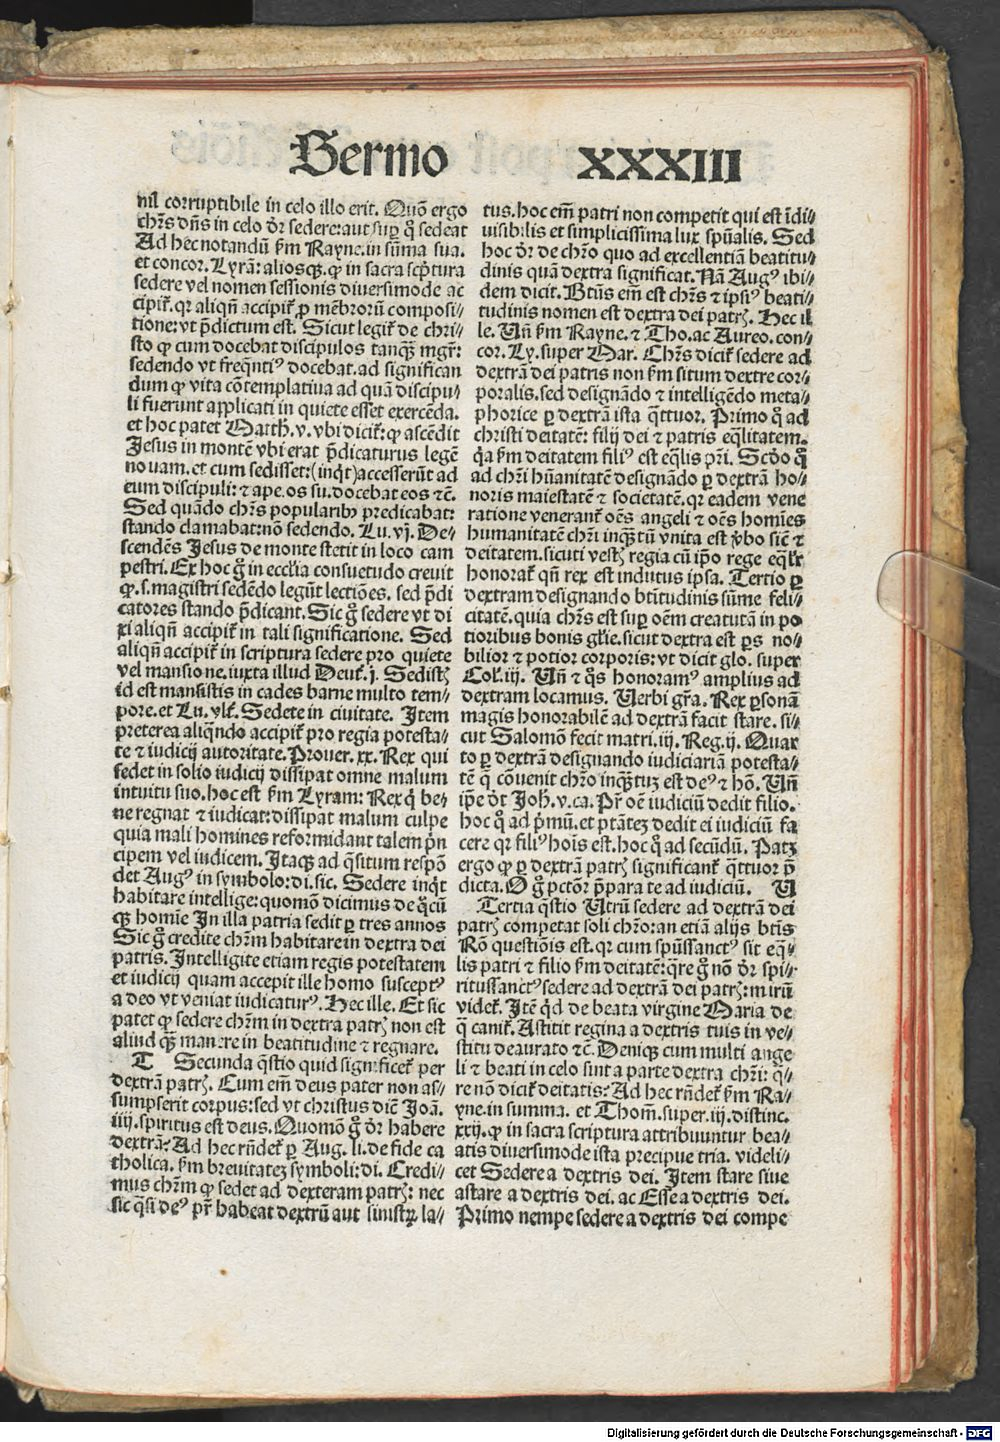 Sermo XXXIII
nil corruptibile in celo illo erit. Quō ergo
chr̄s dn̄s in celo dr̄ sedere: aut suꝑ qͦ sedeat
Ad hec notandū ẜm Rayne. in sūma sua.
et concor. Lyrā: aliosqꝫ. ꝙ in sacra scp̄tura
sedere vel nomen sessionis diuersimode ac
cipit᷑. qꝛ aliqn̄ accipit᷑ ꝓ mēbroꝛū composi-
tione: vt p̄dictum est. Sicut legit᷑ de chri-
sto ꝙ cum docebat discipulos tanqꝫ̄ mgr̄:
sedendo vt freq̄ntiꝰ docebat. ad significan
dum ꝙ vita cōtemplatiua ad quā discipu-
li fuerunt applicati in quiete esset exercēda.
et hoc patet Matth. v. vbi dicit᷑: ꝙ ascēdit
Jesus in montē vbi erat p̄dicaturus legē
nouam. et cum sedisset: (inq̄t) accesserūt ad
eum discipuli: ⁊ ape. os su. docebat eos ⁊c̄.
Sed quādo chr̄s popularibꝰ predicabat:
stando clamabat: nō sedendo. Lu. vj. De-
scendēs Jesus de monte stetit in loco cam
pestri. Ex hoc gͦ in eccl̄ia consuetudo creuit
ꝙ. s. magistri sedēdo legūt lectiōes. sed p̄di
catores stando p̄dicant. Sic gͦ sedere vt di
xi aliqn̄ accipit᷑ in tali significatione. Sed
aliqn̄ accipit᷑ in scriptura sedere pro quiete
vel mansione. iuxta illud Deut᷑. j. Sedistꝭ
id est mansistis in cades barne multo tem-
pore. et Lu. vlt᷑. Sedete in ciuitate. Item
preterea aliqn̄do accipit᷑ pro regia potesta-
te ⁊ iudicij autoritate. Prouer. xx. Rex qui
sedet in solio iudicij dissipat omne malum
intuitu suo. hoc est ẜm Lyram: Rex q̇ be-
ne regnat ⁊ iudicat: dissipat malum culpe
quia mali homines reformidant talem p̄n
cipem vel iudicem. Itaqꝫ ad q̄situm respō
det Augꝰ in symbolo: di. sic. Sedere inq̄t
habitare intellige: quomō dicimus de q̊cū
qꝫ homīe In illa patria sedit ꝑ tres annos
Sic gͦ credite chr̄m habitare in dextra dei
patris. Intelligite etiam regis potestatem
et iudicij quam accepit ille homo susceptꝰ
a deo vt veniat iudicaturꝰ. Hec ille. Et sic
patet ꝙ sedere chr̄m in dextra patrꝭ non est
aliud qꝫ̄ manere in beatitudine ⁊ regnare.
T Secunda q̄stio quid significet᷑ per
dextrā patrꝭ. Cum em̄ deus pater non as-
sumpserit corpus: sed vt christus dic̄ Joā.
iiij. spiritus est deus. Quomō gͦ dr̄ habere
dextrā? Ad hec rn̄det᷑ ꝑ Aug. li. de fide ca
tholica. ẜm breuitateꝫ symboli: di. Credi-
mus chr̄m ꝙ sedet ad dexteram patrꝭ: nec
sic q̄si deꝰ pr̄ habeat dextrū aut sinistꝝ la-
tus. hoc em̄ patri non competit qui est īdi-
uisibilis et simplicissima lux spūalis. Sed
hoc dr̄ de chr̄o quo ad excellentiā beatitu-
dinis quā dextra significat. Nā Augꝰ ibi-
dem dicit. Btūs em̄ est chr̄s ⁊ ipsiꝰ beati-
tudinis nomen est dextra dei patrꝭ. Hec il
le. Un̄ ẜm Rayne. ⁊ Tho. ac Aureo. con-
cor. Ly. super Mar. Chr̄s dicit᷑ sedere ad
dextrā dei patris non ẜm situm dextre cor-
poralis. sed designādo ⁊ intelligēdo meta-
phorice ꝑ dextrā ista q̄ttuor. Primo qͦ ad
christi deitatē: filij dei ⁊ patris eq̄litatem.
q̇a ẜm deitatem filiꝰ est eq̄lis pr̄i. Scd̄o qͦ
ad chr̄i hūanitatē designādo ꝑ dextrā ho-
noris maiestatē ⁊ societatē. qꝛ eadem vene
ratione venerant᷑ oēs angeli ⁊ oēs homīes
humanitatē chr̄i inqꝫ̄tū vnita est v̄bo sic̄ ⁊
deitatem. sicuti vestꝭ regia cū ip̄o rege eq̄lr̄
honorat᷑ qn̄ rex est indutus ipsa. Tertio ꝑ
dextram designando btītudinis sūme feli-
citatē. quia chr̄s est suꝑ oēm creaturā in po
tioribus bonis gl̄ie. sicut dextra est ꝑs no-
bilior ⁊ potior corporis: vt dicit glo. super
Col᷑. iij. Un̄ ⁊ q̄s honoramꝰ amplius ad
dextram locamus. Uerbi gr̄a. Rex ꝑsonā
magis honorabilē ad dextrā facit stare. si-
cut Salomō fecit matri. iij. Reg. ij. Quar
to ꝑ dextrā designando iudiciariā potesta-
tē q̄ cōuenit chr̄o inqꝫ̄tuꝫ est deꝰ ⁊ hō. Un̄
ip̄e dt̄ Joh̄. v. ca. Pr̄ oē iudiciū dedit filio.
hoc qͦ ad p̄mū. et ptātēꝫ dedit ei iudiciū fa
cere qꝛ filiꝰ hoīs est. hoc qͦ ad secūdū. Patꝫ
ergo ꝙ ꝑ dextrā patrꝭ significant᷑ q̄ttuor p̄
dicta. O gͦ pctōr p̄para te ad iudiciū. U
Tertia q̄stio Utrū sedere ad dextrā dei
patrꝭ competat soli chr̄o: an etiā alijs btīs
Rō questiōis est. qꝛ cum spūssanctꝰ sit eq̄-
lis patri ⁊ filio ẜm deitatē: q̄re gͦ nō dr̄ spi-
ritussanctꝰ sedere ad dextrā dei patrꝭ: mirū
videt᷑. Itē q̇d de beata virgine Maria de
q̄ canit᷑. Astitit regina a dextris tuis in ve-
stitu deaurato ⁊c̄. Deniqꝫ cum multi ange
li ⁊ beati in celo sint a parte dextra chr̄i: q̄-
re nō dicit᷑ deitatis? Ad hec rn̄det᷑ ẜm Ra-
yne. in summa. et Thom̄. super. iij. distinc.
xxij. ꝙ in sacra scriptura attribuuntur bea-
tis diuersimode ista precipue tria. videli-
cet Sedere a dextris dei. Item stare siue
astare a dextris dei. ac Esse a dextris dei.
Primo nempe sedere a dextris dei compe
Digitalisierung gefördert durch die Deutsche Forschungsgemeinschaft - DFG